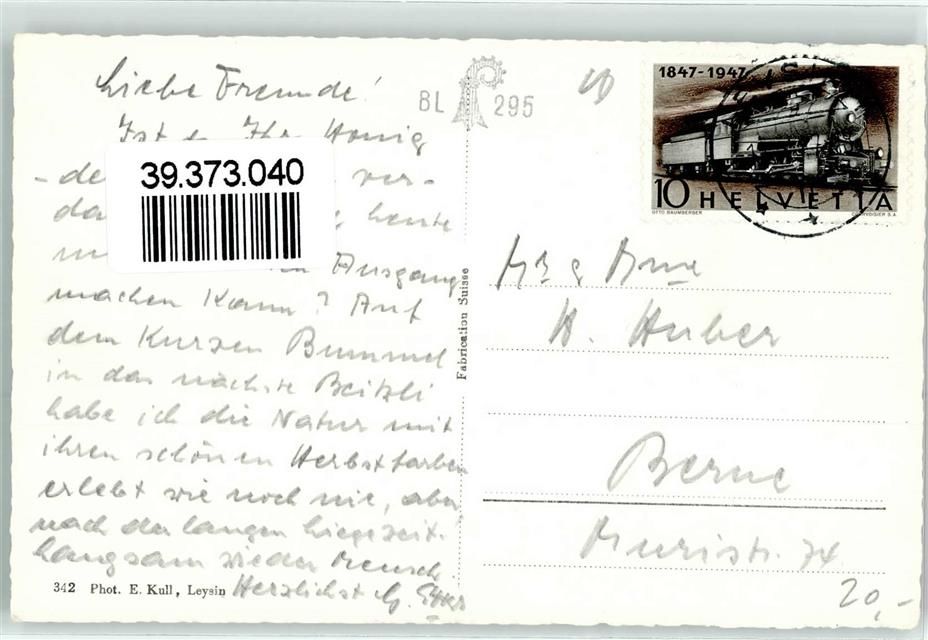 Liebe Freunde!
Ist es Ihr Honig
39.373.040
BL 295
1847-1947
10 HELVETIA
OTTO BAUMBERGER
COURVOISIER S.A.
- de ver-
da heute
Ausgang
machen kann? Auf
dem kurzen Bummel
in das nächste Beitzli
habe ich die Natur mit
ihren schönen Herbstfarben
erlebt wie noch nie, aber
nach der langen Liegezeit.
Langsam wieder Mensch.
Herzlichst
342 Phot. E. Kull, Leysin
Fabrication Suisse
Mr & Mme
H. Huber
Berne
Muristr. 74
20,-